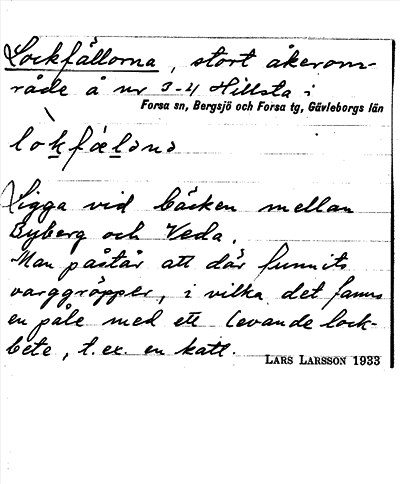 Lockfällorna, stort åkerom-
råde å nr 3-4 Hillsta i
Forsa sn, Bergsjö och Forsa tg, Gävleborgs län
Ligga vid bäcken mellan
Byberg och Veda.
Man påstår att där funnits
varggröpper, i vilka det fanns
en påle med ett levande lock-
bete, t.ex. en katt.
LARS LARSSON 1933